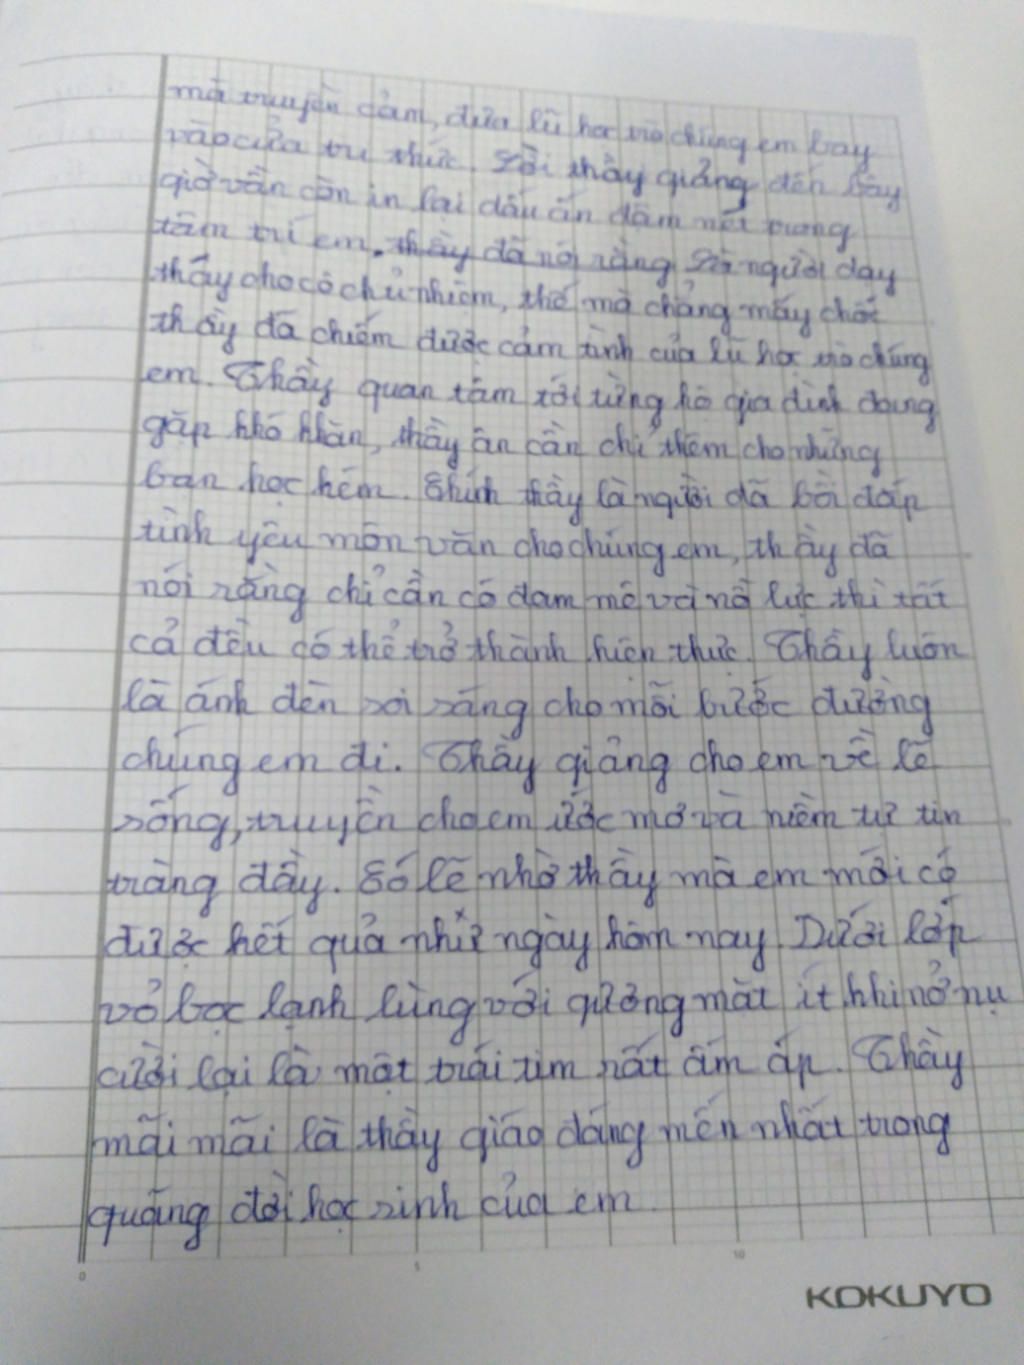 mà truyền cảm, đưa lũ học trò chúng em bay
vào cửa tri thức. Lời thầy giảng đến bây
giờ vẫn còn in lại dấu ấn đậm nét trong
tâm trí em. thầy đã nói rằng Là người dạy
thay cho cô chủ nhiệm, thế mà chẳng mấy chốc
thầy đã chiếm được cảm tình của lũ học trò chúng
em. Thầy quan tâm tới từng hộ gia đình đang
gặp khó khăn, thầy ân cần chỉ thêm cho những
bạn học kém. Chính thầy là người đã bồi đắp
tình yêu môn văn cho chúng em, thầy đã
nói rằng chỉ cần có đam mê và nỗ lực thì tất
cả đều có thể trở thành hiện thực. Thầy luôn
là ánh đèn soi sáng cho mỗi bước đường
chúng em đi. Thầy giảng cho em về lẽ
sống, truyền cho em ước mơ và niềm tự tin
tràng đầy. Có lẽ nhờ thầy mà em mới có
được kết quả như ngày hôm nay. Dưới lớp
vỏ bọc lạnh lùng với gương mặt ít khi nở nụ
cười lại là một trái tim rất ấm áp. Thầy
mãi mãi là thầy giáo đáng mến nhất trong
quãng đời học sinh của em.
0 5 10
KOKUYO